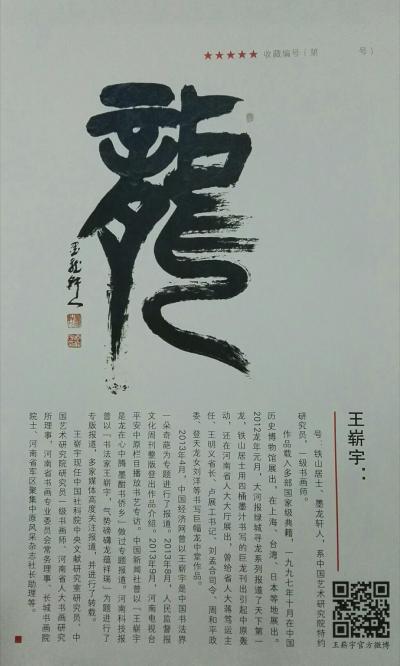 ★★★★★ 收藏编号（第 号）
龍
王崭宇：
号：铁山居士、墨龙轩人，系中国艺术研究院特约
研究员，一级书画师。
作品载入多部国家级典籍，一九九七年十月在中国
历史博物馆展出，在上海、台湾、日本等地展出。
2012龙年元月，大河报绿城寻龙系列报道了天下第一
龙，铁山居士用四桶墨汁书写的巨龙列出引起中原轰
动，还在河南省人大大厅展出，曾给省人大蒋笃运主
任、王明义省长、卢展工书记、刘孟合司令、周和平政
委、登天龙女刘洋等书写巨幅龙中堂作品。
2013年4月，中国经济网曾以王崭宇是中国书法界
一朵奇葩为专题进行了报道。2013年9月，人民监督报
文化周刊整版登出作品介绍。2013年9月，河南电视台
平安中原栏目播放书艺专访。中国新闻社曾以「王崭宇
是龙在心中腾墨酣书侨乡」做过专题报道。河南科技报
曾以「书法家王崭宇，气势磅礴龙蕴祥瑞」为题进行了
专版报道，多家媒体高度关注报道，并进行了转载。
王崭宇现任中国社科院中央文献研究室研究员，中
国艺术研究院研究员一级书画师、河南省人大书画研究
所理事，河南省书画专业委员会常务理事、长城书画院
院士、河南省军区聚集中原风采杂志社社长助理等。
王崭宇官方微博